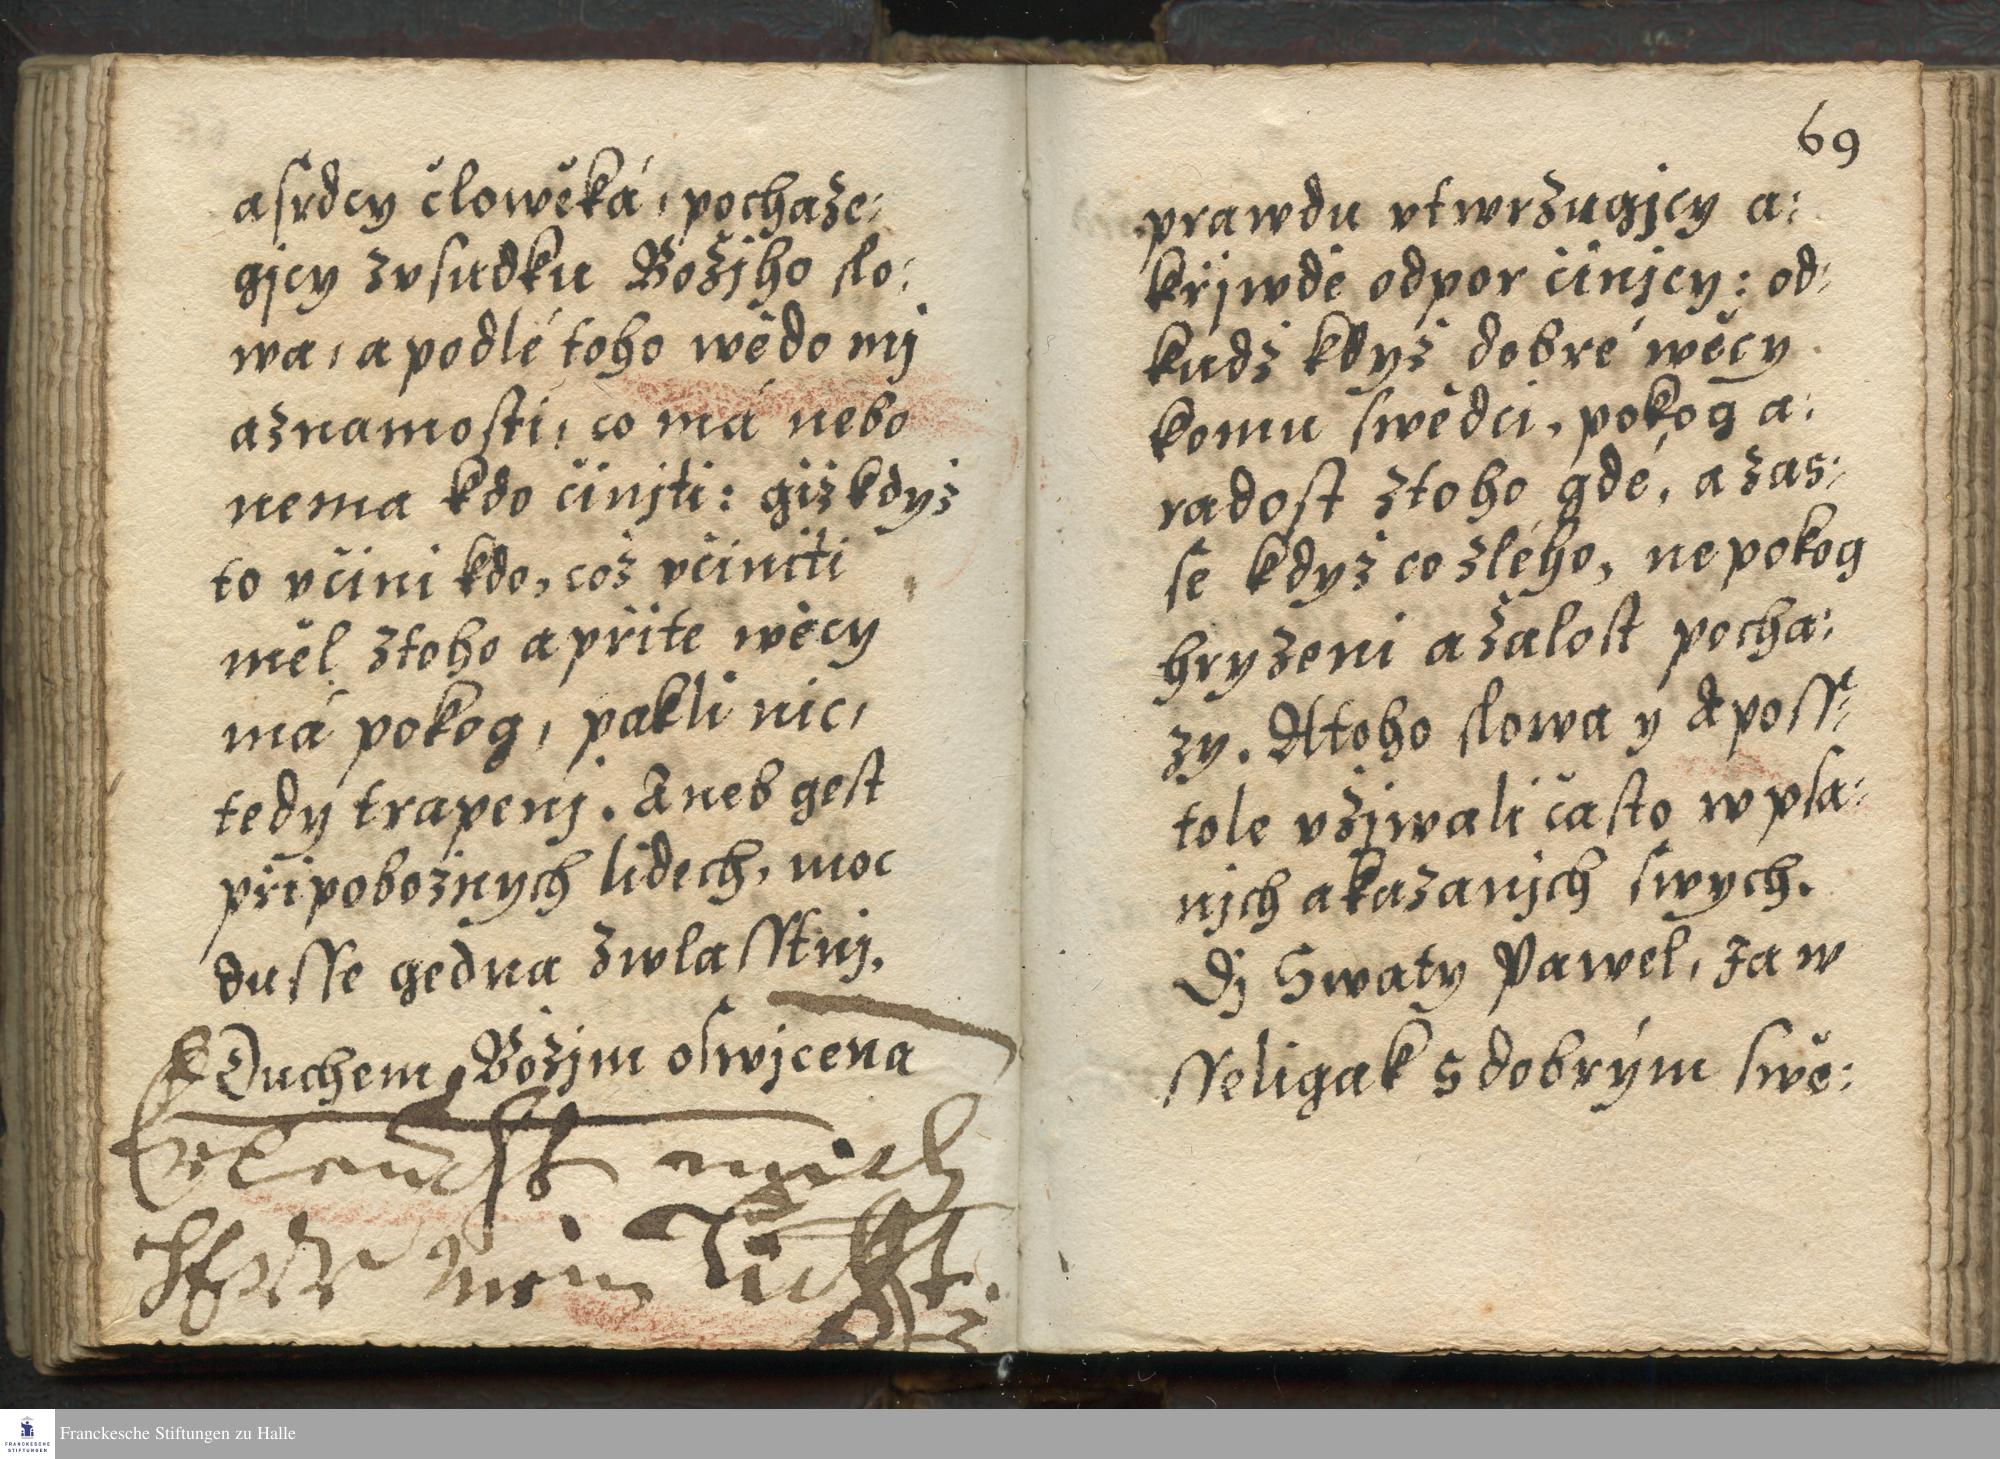 a srdcy čloweka, pochaze:
gjcy z vsudku Božjho slo:
wa, a podlé toho wědo mj
a znamosti, co má nebo
nema kdo činjti: giž když
to včini kdo, což včiniti
měl z toho a při te wěcy
má pokog, pakli nic,
tedy trapenj. Aneb gest
při pobožnych lidech, moc
dusse gedna zwlasstnj,
Duchem Božjm oswjcena
mich
Herr mein
69
prawdu vtwrzugjcy a:
křjwdě odpor činjcy: od:
kudž když dobré wěcy
komu swědci, pokog a:
radost z toho gdé, a zas:
se když co zlého, ne pokog
hryzeni a žalost pocha:
zy. A toho slowa y Aposs:
tole vžjwali často w psa:
njch a kazanjch swych.
Dj Swaty Pawel, Ja w
sseligak s dobrým swě:
Franckesche Stiftungen zu Halle
FRANCKESCHE
STIFTUNGEN